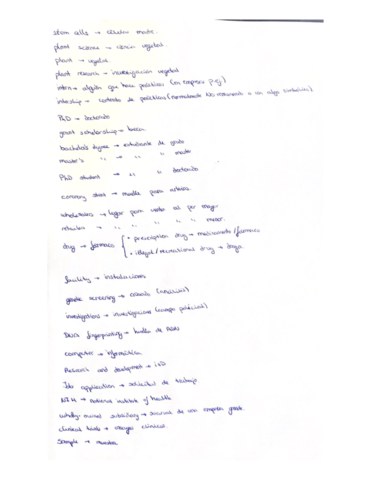 stem cells → células madre.
plant science → ciencia vegetal.
plant → vegetal
plant research → investigación vegetal
intern → alguien que hace prácticas (en empresa p.ej)
intership → contrato de prácticas (normalmente
PhD → doctorado
grant scholarship → beca
bachelor's degree → estudiante de grado
master's → " " " master
PhD student → " " doctorado
coronary stent → muelle para arterias.
wholesalers → lugar para vender al por mayor
retailers → " " " " " menor.
drug → fármaco { • prescription drug → medicamento/fármaco
• illegal/recreational drug → droga
facility → instalaciones
genetic screening → (análisis)
investigations → investigaciones (cuerpo policial)
DNA fingerprinting → huella de ADN
computer → informática
Research and development → i+D
Job application → solicitud de trabajo
NIH → national institute of health
wholly-owned subsidiary → sucursal de una empresa grande.
clinical trials → ensayos clínicos.
Sample → muestra